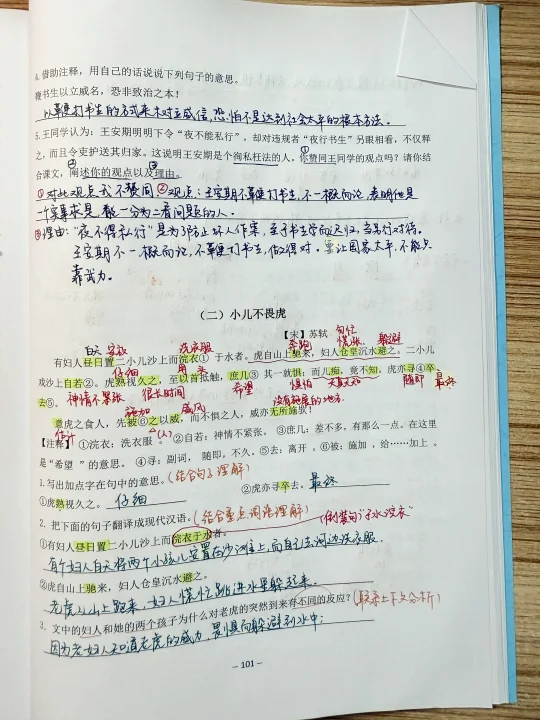 4. 借助注释，用自己的话说说下列句子的意思。
鞭书生以立威名，恐非致治之本！
以鞭打书生的方式来树立威信，恐怕不是达到社会太平的根本方法。
5. 王同学认为：王安期明明下令“夜不能私行”，却对违规者“夜行书生”另眼相看，不仅释
之，而且令吏护送其归家。这说明王安期是个徇私枉法的人。你赞同王同学的观点吗？请你结
合课文，阐述你的观点以及理由。
①对此观点我不赞同②观点：王安期不鞭打书生，不一概而论，表明他是
一个实事求是，能一分为二看问题的人。
③理由：“夜不得私行”是为了防止坏人作案，至于书生学而迟归，当另行对待。
王安期不一概而论，不鞭打书生，做得对。要让国家太平，不能只
靠武力。
（二）小儿不畏虎
【宋】苏轼
白天 安放 洗衣服 奔跑 匆忙 慌张 躲避
有妇人昼日置二小儿沙上而浣衣①于水者。虎自山上驰来，妇人仓皇沉水避之。二小儿
仔细 用 头 惧怕 天真无知 随即 最终
戏沙上自若②。虎熟视久之，至以首抵触，庶③其一就惧；而儿痴，竟不知，虎亦寻④卒
去⑤。 神情不紧张 很长时间 希望
施加 威风 没有施展的地方
意虎之食人，先被⑥之以威，而不惧之人，威亦无所施欤！
估计 (人)
【注释】①浣衣：洗衣服 。②自若：神情不紧张。 ③庶几：差不多，有那么一点。在这里
是“希望 ”的意思。 ④寻：副词， 随即，不久。⑤去：离开 。⑥被：施加 ，给……加上 。
1. 写出加点字在句中的意思。(结合句子理解)
①虎熟视久之。 仔细 ②虎亦寻卒去。 最终
2. 把下面的句子翻译成现代汉语。(结合重点词语理解) (倒装句“于水浣衣”
①有妇人昼日置二小儿沙上而浣衣于水者。
有个妇人白天将两个小孩儿安置在沙滩上而自己去河边洗衣服。
②虎自山上驰来，妇人仓皇沉水避之。
老虎从山上跑来，妇人慌忙跳进水里躲起来。
3. 文中的妇人和她的两个孩子为什么对老虎的突然到来有不同的反应？(联系上下文分析)
因为老妇人知道老虎的威力，畏惧而躲避到水中；
– 101 –